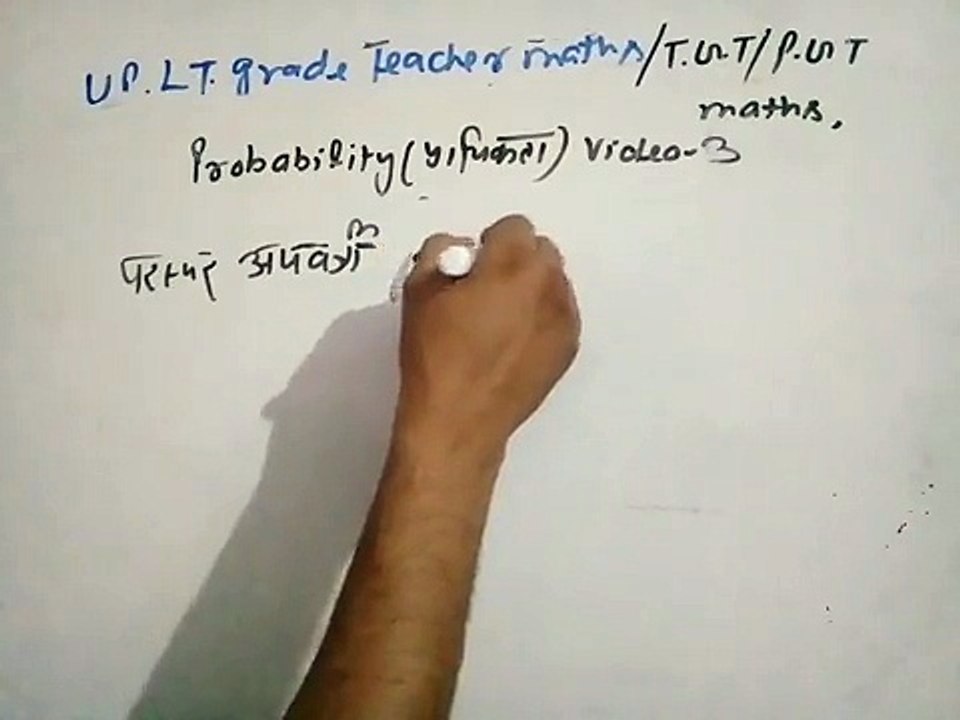 UP. LT. grade Teacher maths/T.G.T/P.G.T
maths.
Probability (प्रायिकता) Video-3
परस्पर अपवर्जी